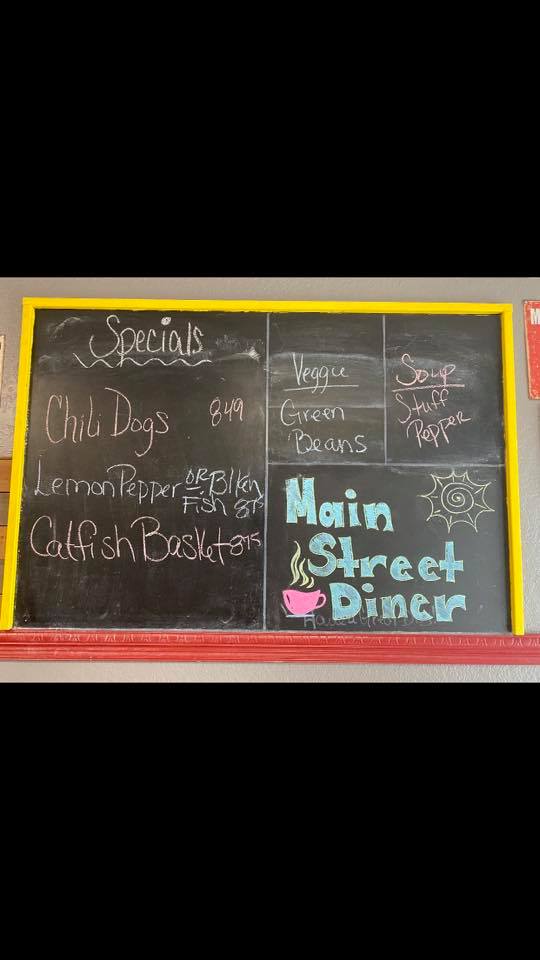 Specials
Chili Dogs 849
Lemon Pepper OR Blken
Fish 875
Catfish Basket 875
Veggie
Green
Beans
Soup
Stuff
Pepper
Main
Street
Diner
M